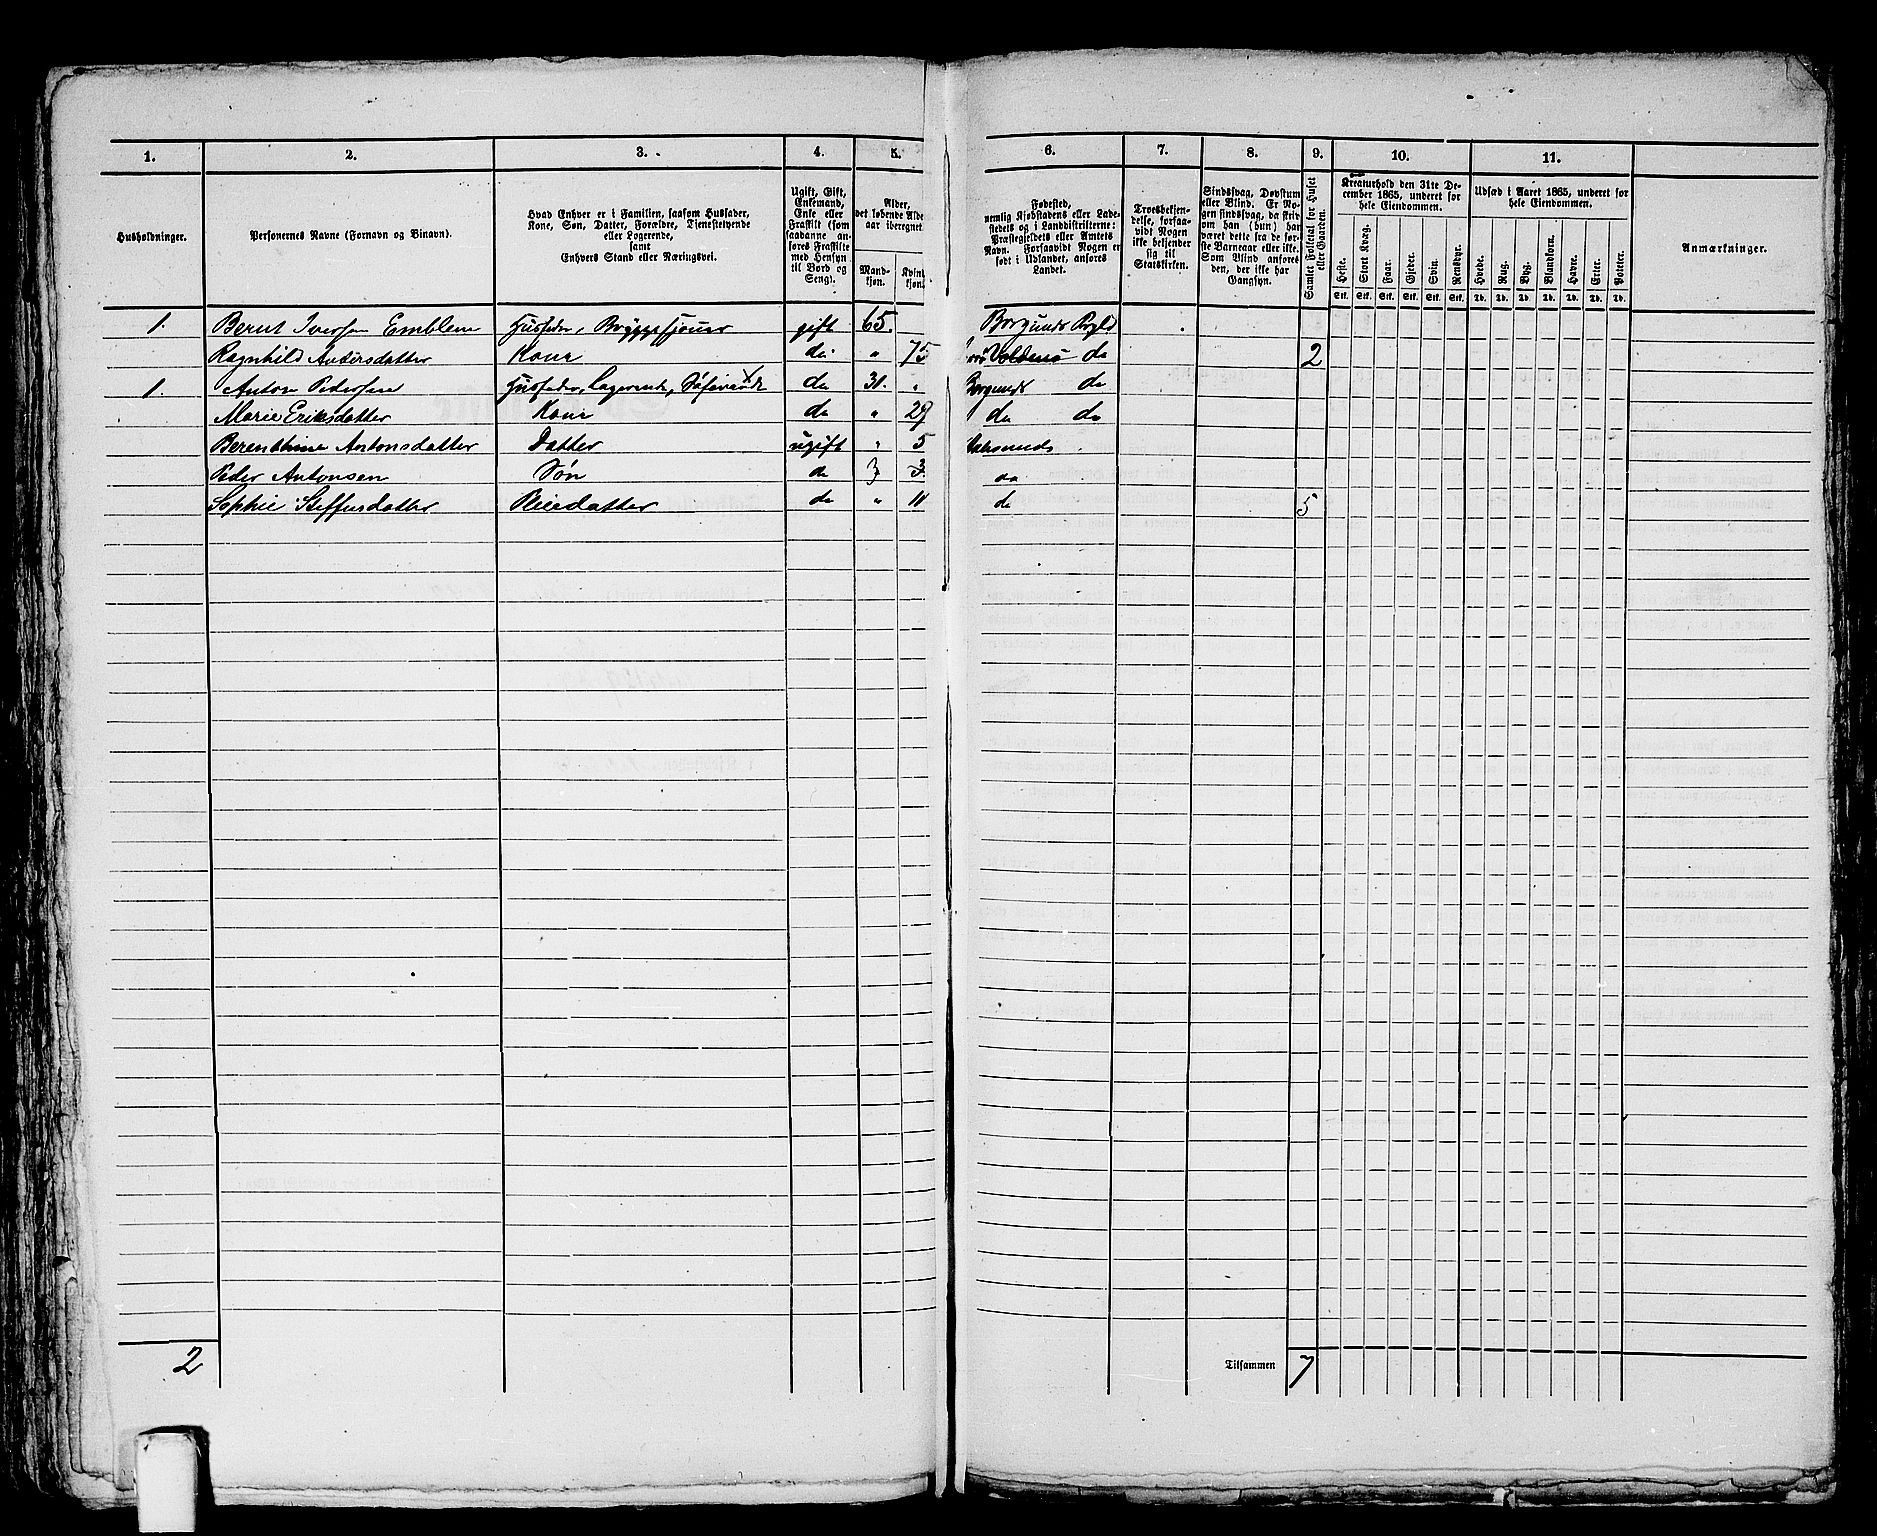 1. 2. 3. 4. 5. 6. 7. 8. 9. 10. 11.
Husholdninger.
Personernes Navne (Fornavn og Binavn).
Hvad Enhver er i Familien, saasom Husfader,
Kone, Søn, Datter, Forældre, Tjenestetyende
eller Logerende,
samt
Enhvers Stand eller Næringsvei.
Ugift, Gift,
Enkemand,
Enke eller
Fraskilt (som
saadanne an-
føres Fraskilte
med Hensyn
til Bord og
Seng).
Alder,
det løbende Alders-
aar iberegnet.
Mand-
kjøn.
Kvind-
kjøn.
Fødested,
nemlig Kjøbstadens eller Lade-
stedets og i Landdistrikterne:
Præstegjeldets eller Amtets
Navn. Forsaavidt Nogen er
født i Udlandet, anføres
Landet.
Troesbekjen-
delse, forsaa-
vidt Nogen
ikke bekjender
sig til
Statskirken.
Sindssvag, Døvstum
eller Blind. Er No-
gen sindssvag, da skriv
om han (hun) har
været dette fra de før-
ste Barneaar eller ikke.
Som Blind anføres
den, der ikke har
Gangsyn.
Samlet Folketal for Huset
eller Gaarden.
Kreaturhold den 31te De-
cember 1865, underet for
hele Eiendommen.
Heste. Stort Kvæg. Faar. Gjeder. Svin. Rensdyr.
Stk. Stk. Stk. Stk. Stk. Stk.
Udsæd i Aaret 1865, underet for
hele Eiendommen.
Hvede. Rug. Byg. Blandkorn. Havre. Erter. Poteter.
Td. Td. Td. Td. Td. Td. Td.
Anmærkninger.
1. Bernt Iversen Emblem Husfader, Bryggesjouer gift 65. Borgunds Prgld
Ragnhild Andersdatter Kone do " 75 Voldens do 2
1. Anton Pedersen Husfader, Logerende, Søfarende do 31. " Borgunds do
Marie Eriksdatter Kone do " 29 do do
Berenthine Antonsdatter Datter ugift " 5 Aalesunds
Peder Antonsen Søn do 3 3 do
Sophie Steffensdatter Pleiedatter do " 11 do 5
2 Tilsammen 7